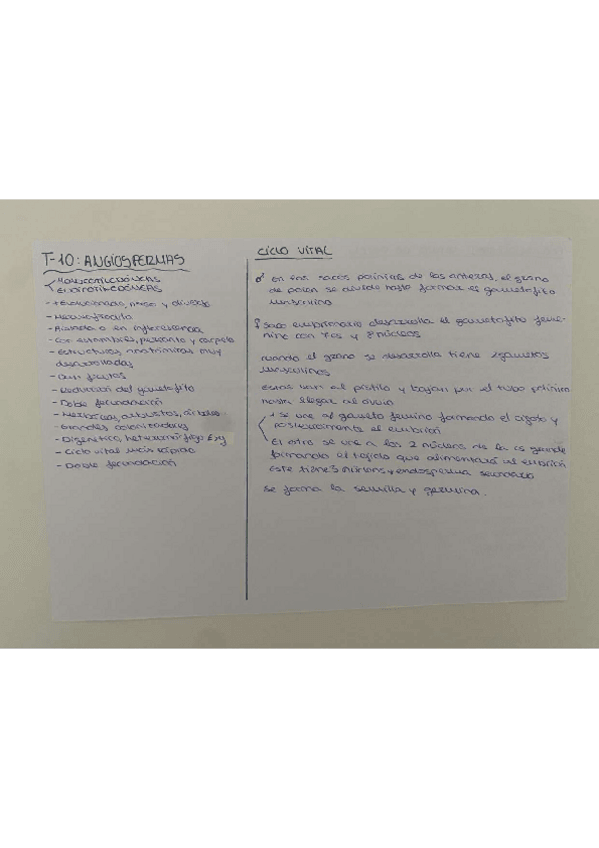 T-10: ANGIOSPERMAS
MONOCOTILEDÓNEAS
EUDICOTILEDÓNEAS
- + evolucionadas, nuevo y diverso
- Hermafrodita
- Aislada o en inflorescencia
- Con estambres, perianto y carpelo
- Estructuras nutrimicas muy
desarrolladas
- Dan frutos
- Reducción del gametofito
- Doble fecundación
- Herbáceas, arbustos, árboles
- Grandes colonizadoras
- Digenético, heteromórfigo E>g
- Ciclo vital más rápido
- Doble fecundación
CICLO VITAL
♂ en los sacos polínicos de las anteras, el grano
de polen se divide hasta formar el gametofito
masculino
♀ Saco embrionario desarrolla el gametofito feme-
nino con 7 cs y 8 núcleos
cuando el grano se desarrolla tiene 2 gametos
masculinos
Estos van al pistilo y bajan por el tubo polínico
hasta llegar al óvulo
1 se une al gameto femenino formando el cigoto y
posteriormente el embrión
El otro se une a los 2 núcleos de la cs grande
formando el tejido que alimentará al embrión
este tiene 3 núcleos y endosperma secundario
Se forma la semilla y germina.